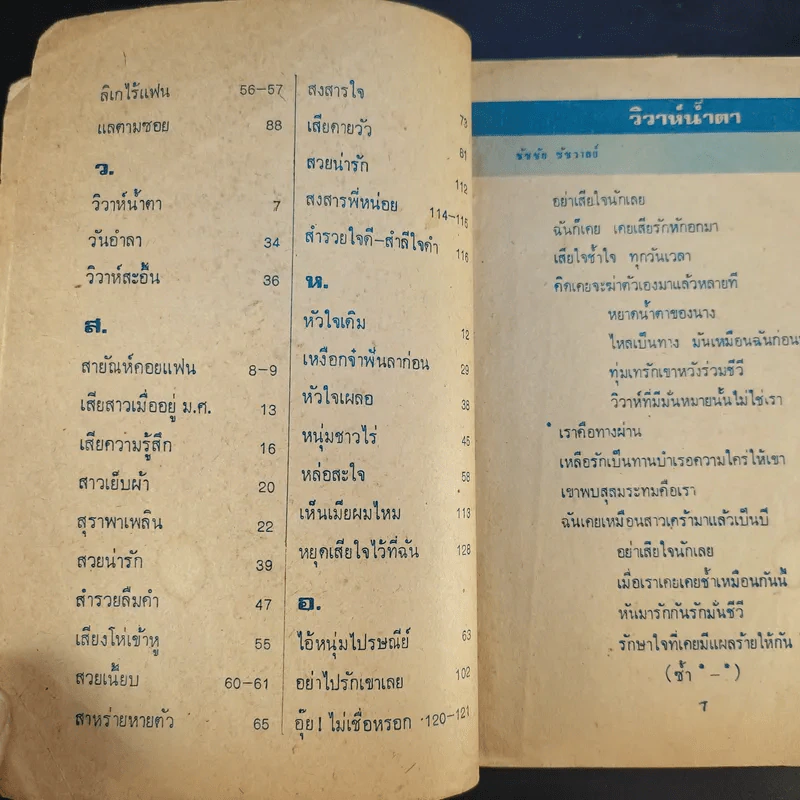 ลิเกไร้แฟน 56-57
แลตามซอย 88
ว.
วิวาห์น้ำตา 7
วันอำลา 34
วิวาห์สะอื้น 36
ส.
สายัณห์คอยแฟน 8-9
เสียสาวเมื่ออยู่ ม.ศ. 13
เสียความรู้สึก 16
สาวเย็บผ้า 20
สุราพาเพลิน 22
สวยน่ารัก 39
สำรวยลืมคำ 47
เสียงโห่เข้าหู 55
สวยเนี้ยบ 60-61
สาหร่ายหายตัว 65
สงสารใจ 78
เสียดายวัว 81
สวยน่ารัก 112
สงสารพี่หน่อย 114-116
สำรวยใจดี-สำลีใจดำ 116
ห.
หัวใจเดิม 12
เหงือกจ๋าฟันลาก่อน 29
หัวใจเผลอ 38
หนุ่มชาวไร่ 45
หล่อสะใจ 58
เห็นเมียผมไหม 118
หยุดเสียใจไว้ที่ฉัน 128
อ.
ไอ้หนุ่มไปรษณีย์ 63
อย่าไปรักเขาเลย 102
อุ๊ย! ไม่เชื่อหรอก 120-121
วิวาห์น้ำตา
ชัชชัย ชัชวาลย์
อย่าเสียใจนักเลย
ฉันก็เคย เคยเสียรักหักอกมา
เสียใจช้ำใจ ทุกวันเวลา
คิดเคยจะฆ่าตัวเองมาแล้วหลายที
หยาดน้ำตาของนาง
ไหลเป็นทาง มันเหมือนฉันก่อน
ทุ่มเทรักเขาหวังร่วมชีวี
วิวาห์ที่มีมั่นหมายนั้นไม่ใช่เรา
* เราคือทางผ่าน
เหลือรักเป็นทานบำเรอความใคร่ให้เขา
เขาพบสุสมระทมคือเรา
ฉันเคยเหมือนสาวเศร้ามาแล้วเป็นปี
อย่าเสียใจนักเลย
เมื่อเราเคยเคยช้ำเหมือนกันนี้
หันมารักกันรักมั่นชีวี
รักษาใจที่เคยมีแผลร้ายให้กัน
(ซ้ำ * - *)
7